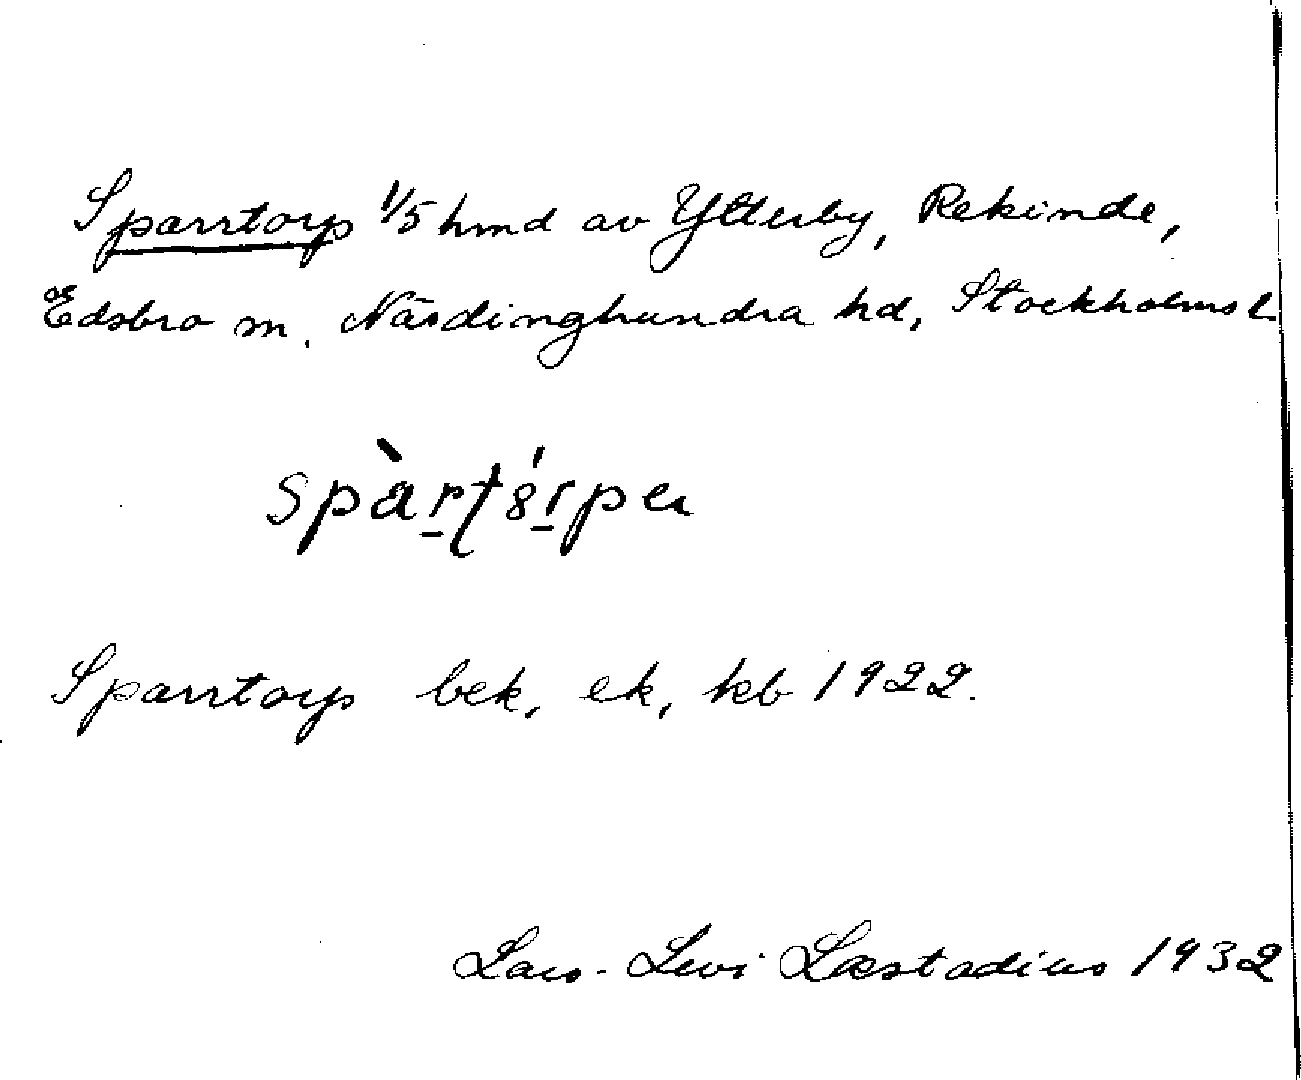 Sparrtorp 1/5 hmd av Ytterby, Rekinde,
Edsbro sn, Närdinghundra hd, Stockholms l
spàrt8́rpeɴ
Sparrtorp bek, ek, kb 1922.
Lars-Levi Læstadius 1932